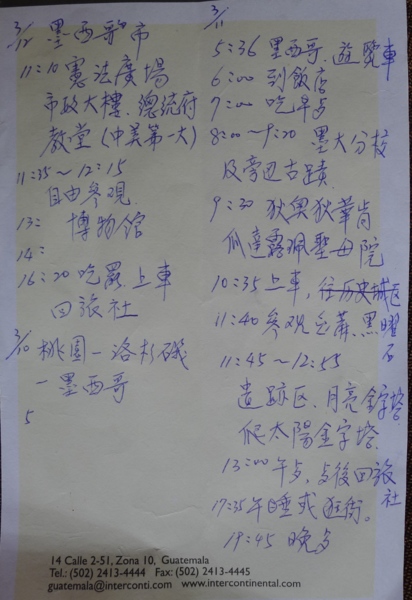 3/12 墨西哥市
11:10 憲法廣場
市政大樓、總統府
教堂(中美第一大)
11:35~12:15
自由參觀
13: 博物館
14:
16:20 吃罷上車
回旅社
3/10 桃園-洛杉磯
-墨西哥
5
3/11
5:36 墨西哥、遊覽車
6:00 到飯店
7:00 吃早点
8:00~9:20 墨大分校
及旁边古蹟
9:30 狄奥狄華肯
瓜達露珮聖母院
10:35 上車,往历史城区
11:40 參观 黑曜
石
11:45~12:55
遺跡区、月亮金字塔
爬太陽金字塔
13:00 午歺,歺後回旅
社
17:35 午睡或逛街。
19:45 晚歺
14 Calle 2-51, Zona 10, Guatemala
Tel.: (502) 2413-4444 Fax: (502) 2413-4445
guatemala@interconti.com www.intercontinental.com